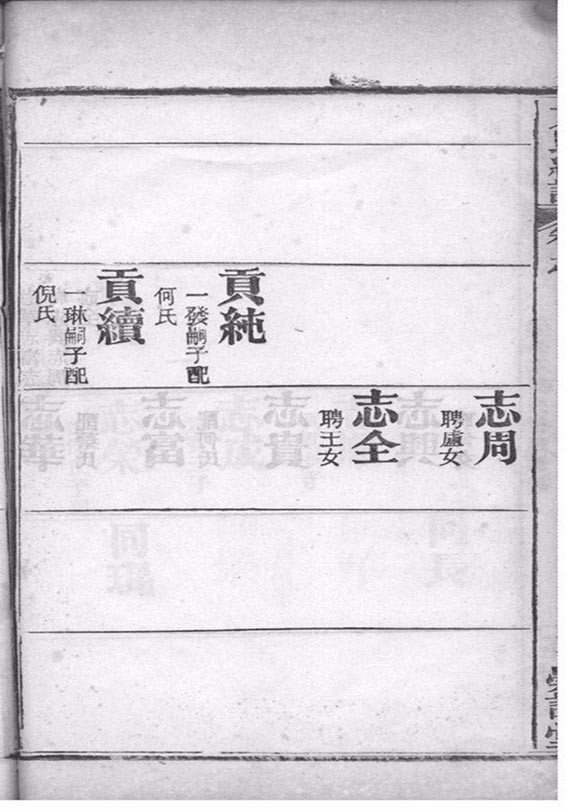 志周
聘盧女
志全
聘王女
貢純
一發嗣子配
何氏
貢續
一琳嗣子配
倪氏